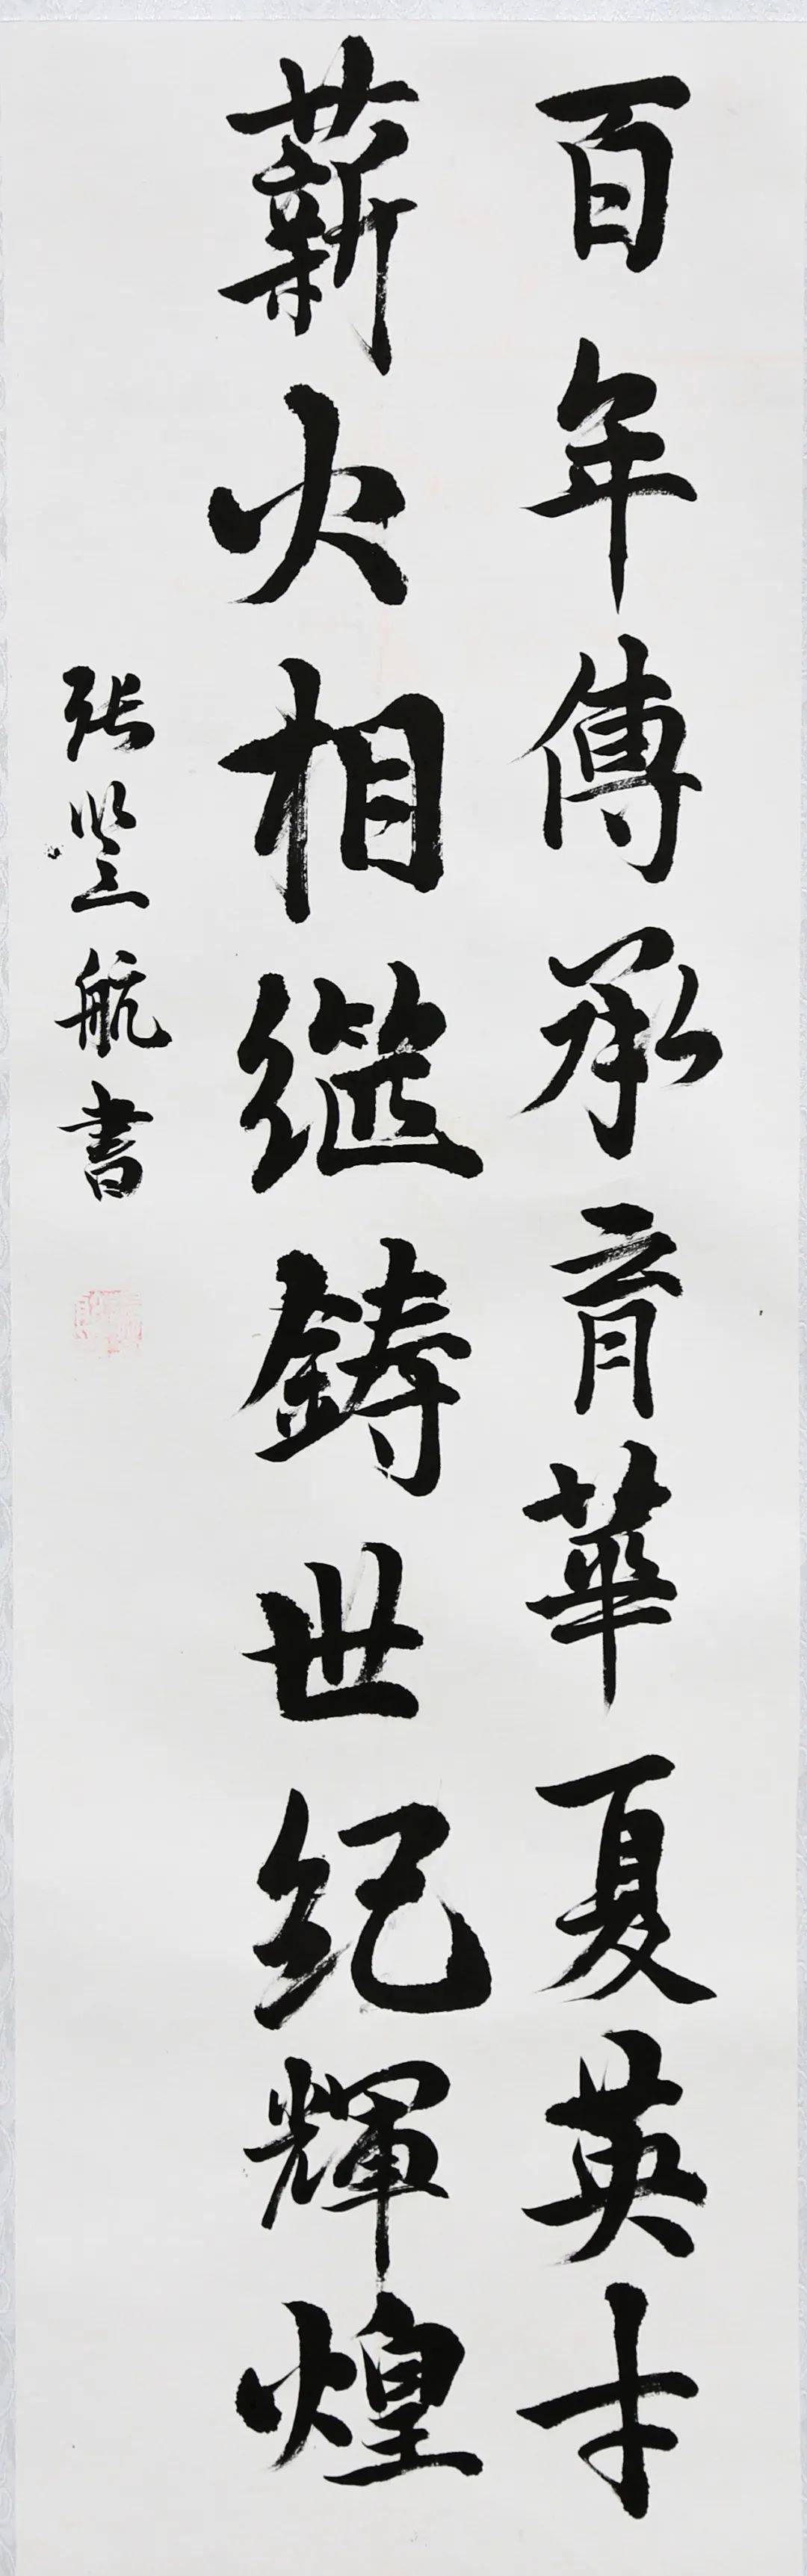 百年傳承育華夏英才
薪火相繼鑄世紀輝煌
张航書